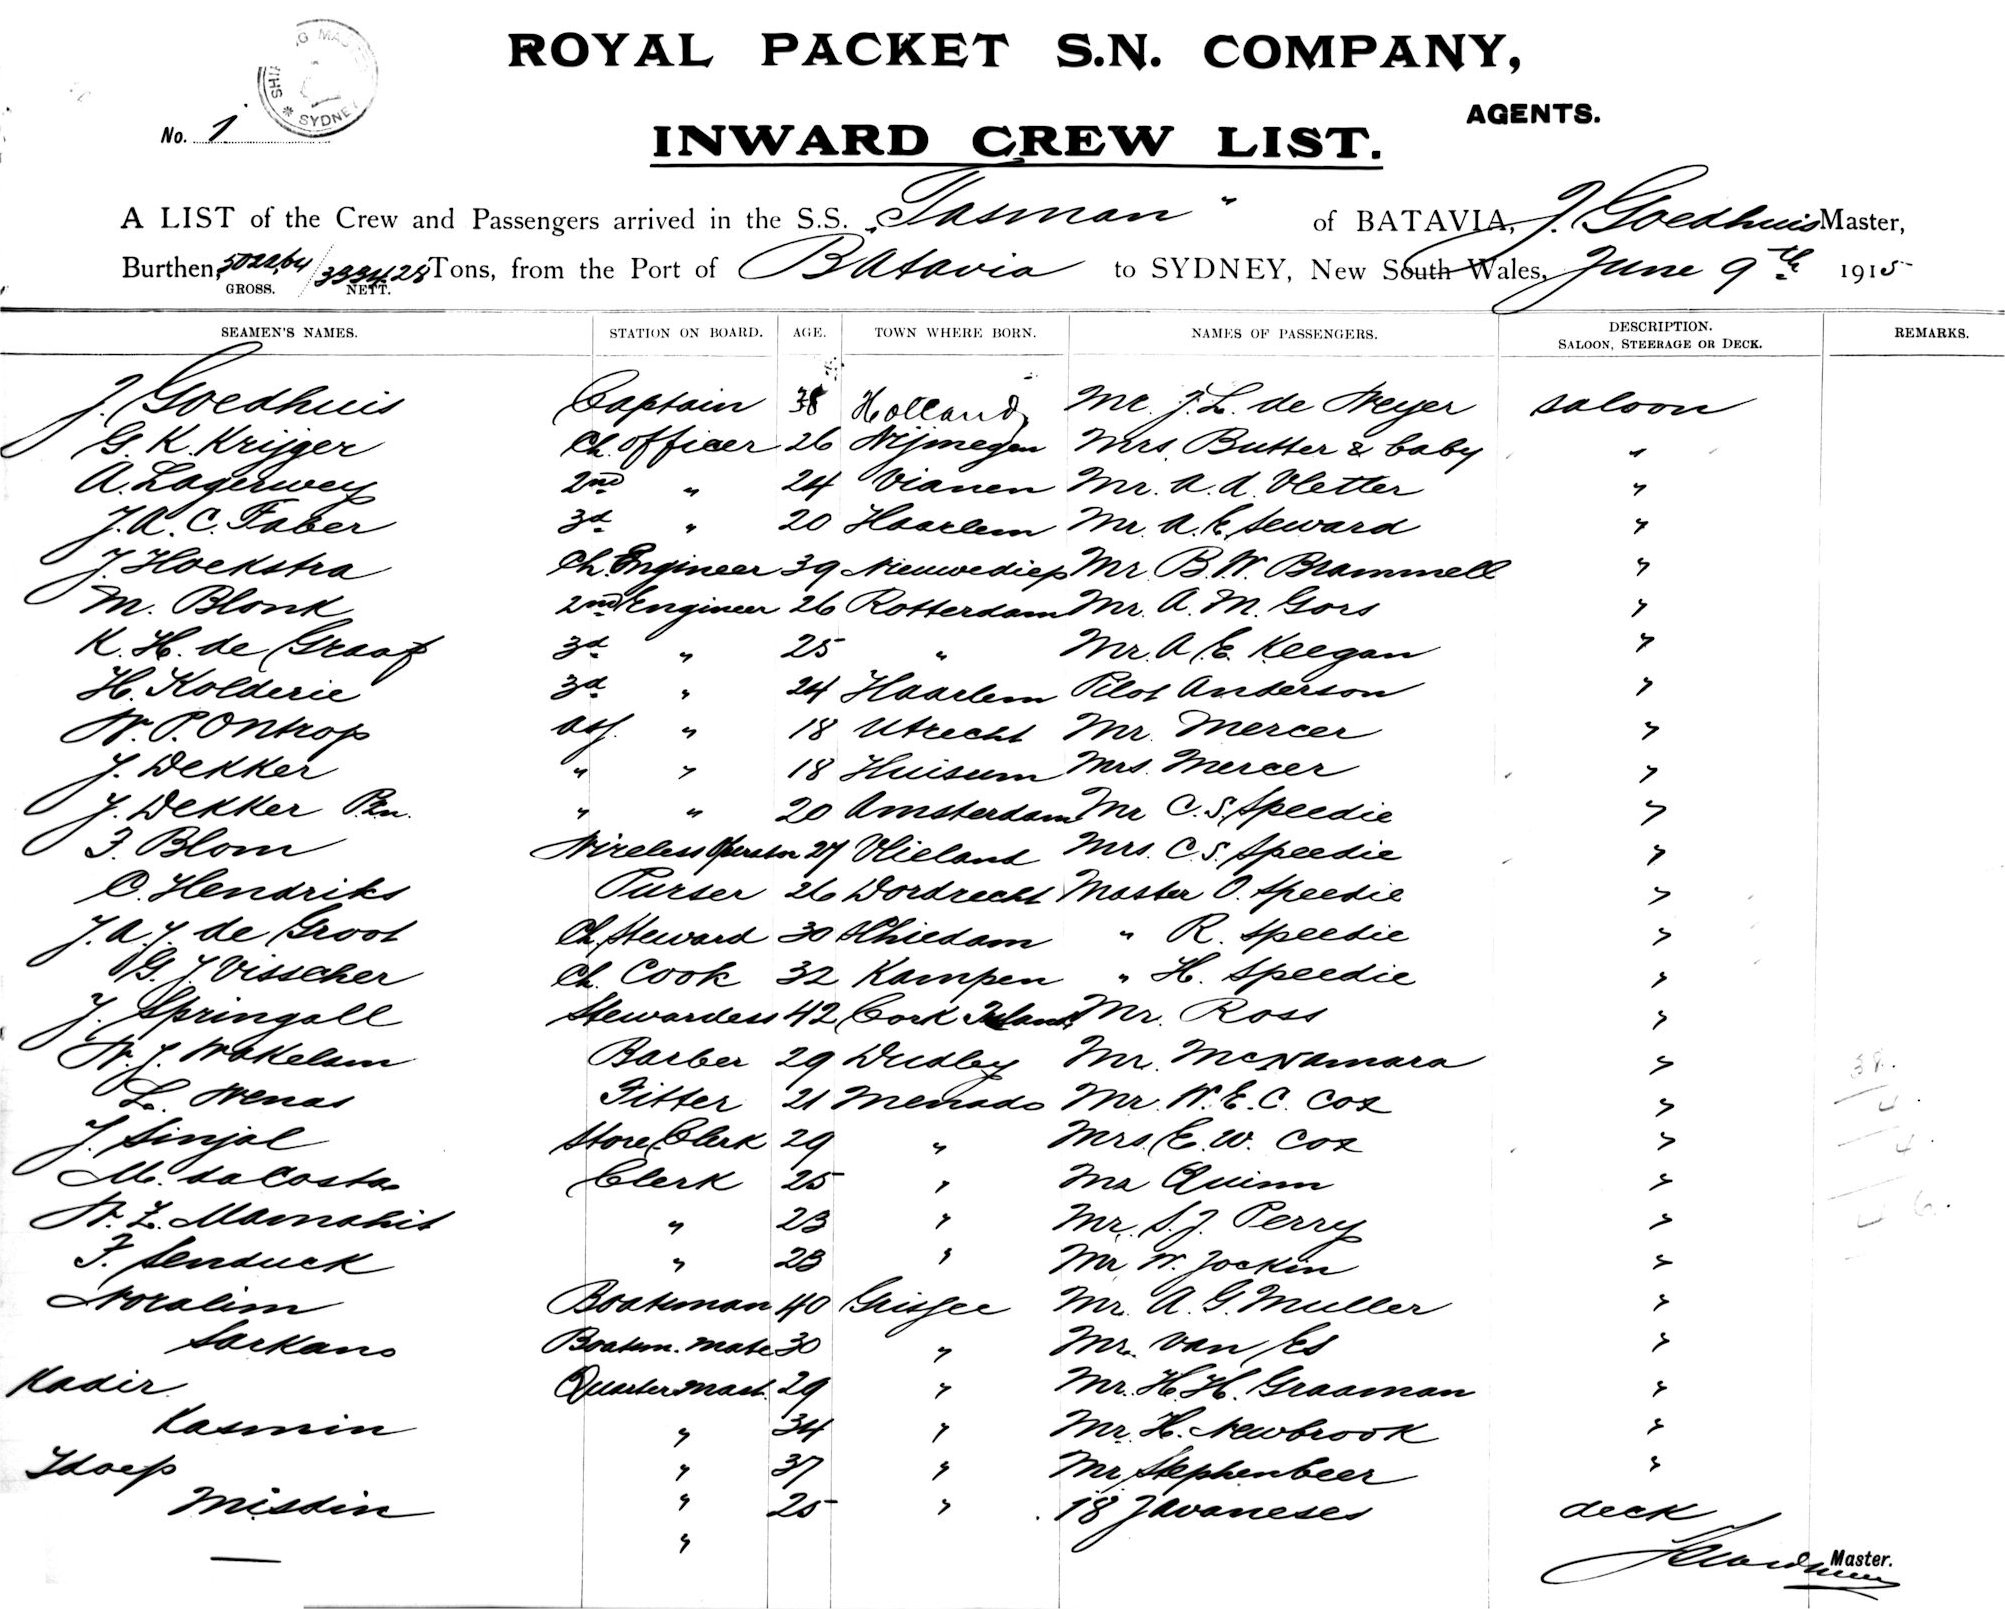 ROYAL PACKET S.N. COMPANY,
AGENTS.
SYDNEY
No. 1
INWARD CREW LIST.
A LIST of the Crew and Passengers arrived in the S.S. „Tasman" of BATAVIA, J. Goedhuis Master,
Burthen, 5022,64 / 3334.28 Tons, from the Port of Batavia to SYDNEY, New South Wales, June 9th 1915
GROSS. NETT.
SEAMEN'S NAMES. STATION ON BOARD. AGE. TOWN WHERE BORN. NAMES OF PASSENGERS. DESCRIPTION. SALOON, STEERAGE OR DECK. REMARKS.
J. Goedhuis Captain 38 Holland Mr. J. L. de Weyer saloon
G. K. Krijger Ch. Officer 26 Nijmegen Mrs. Butter & baby "
A. Lagerwey 2nd " 24 Vianen Mr. A. A. Vletter "
J. A. C. Faber 3d " 20 Haarlem Mr. A. E. Seward "
J. Hoekstra Ch. Engineer 39 Nieuwediep Mr. B. W. Brammell "
M. Blonk 2nd Engineer 26 Rotterdam Mr. A. M. Gors "
K. H. de Graaf 3d " 25 " Mr. A. E. Keegan "
H. Kolderie 3d " 24 Haarlem Pilot Anderson "
W. P. Ontrop ass. " 18 Utrecht Mr. Mercer "
J. Dekker " " 18 Huisum Mrs. Mercer "
J. Dekker Pzn. " " 20 Amsterdam Mr C. S. Speedie "
F. Blom Wireless Operator 27 Vlieland Mrs. C. S. Speedie "
C. Hendriks Purser 26 Dordrecht Master O. Speedie "
J. A. J. de Groot Ch. Steward 30 Schiedam " R. Speedie "
G. J. Visscher Ch. Cook 32 Kampen " H. Speedie "
J. Springall Stewardess 42 Cork Ireland Mr. Ross "
W. J. Wakelam Barber 29 Dudley Mr. McNamara "
L. Wenas Fitter 21 Menado Mr. W. E. C. Cox "
J. Sinjal Store Clerk 29 " Mrs. E. W. Cox "
M. da Costa Clerk 25 " Mr Quinn "
W. L. Mamahit " 23 " Mr. S. J. Perry "
F. Senduck " 23 " Mr W. Jockin "
Noralim Boatsman 40 Grissee Mr. A. G. Muller "
Sarkano Boatsm. mate 30 " Mr. van Es "
Kadir Quartermast. 29 " Mr. H. H. Graaman "
Kasmin " 34 " Mr. H. Newbrook "
Idoep " 37 " Mr Stephenbeer "
Misdin " 25 " 18 Javaneses deck
"
Master.